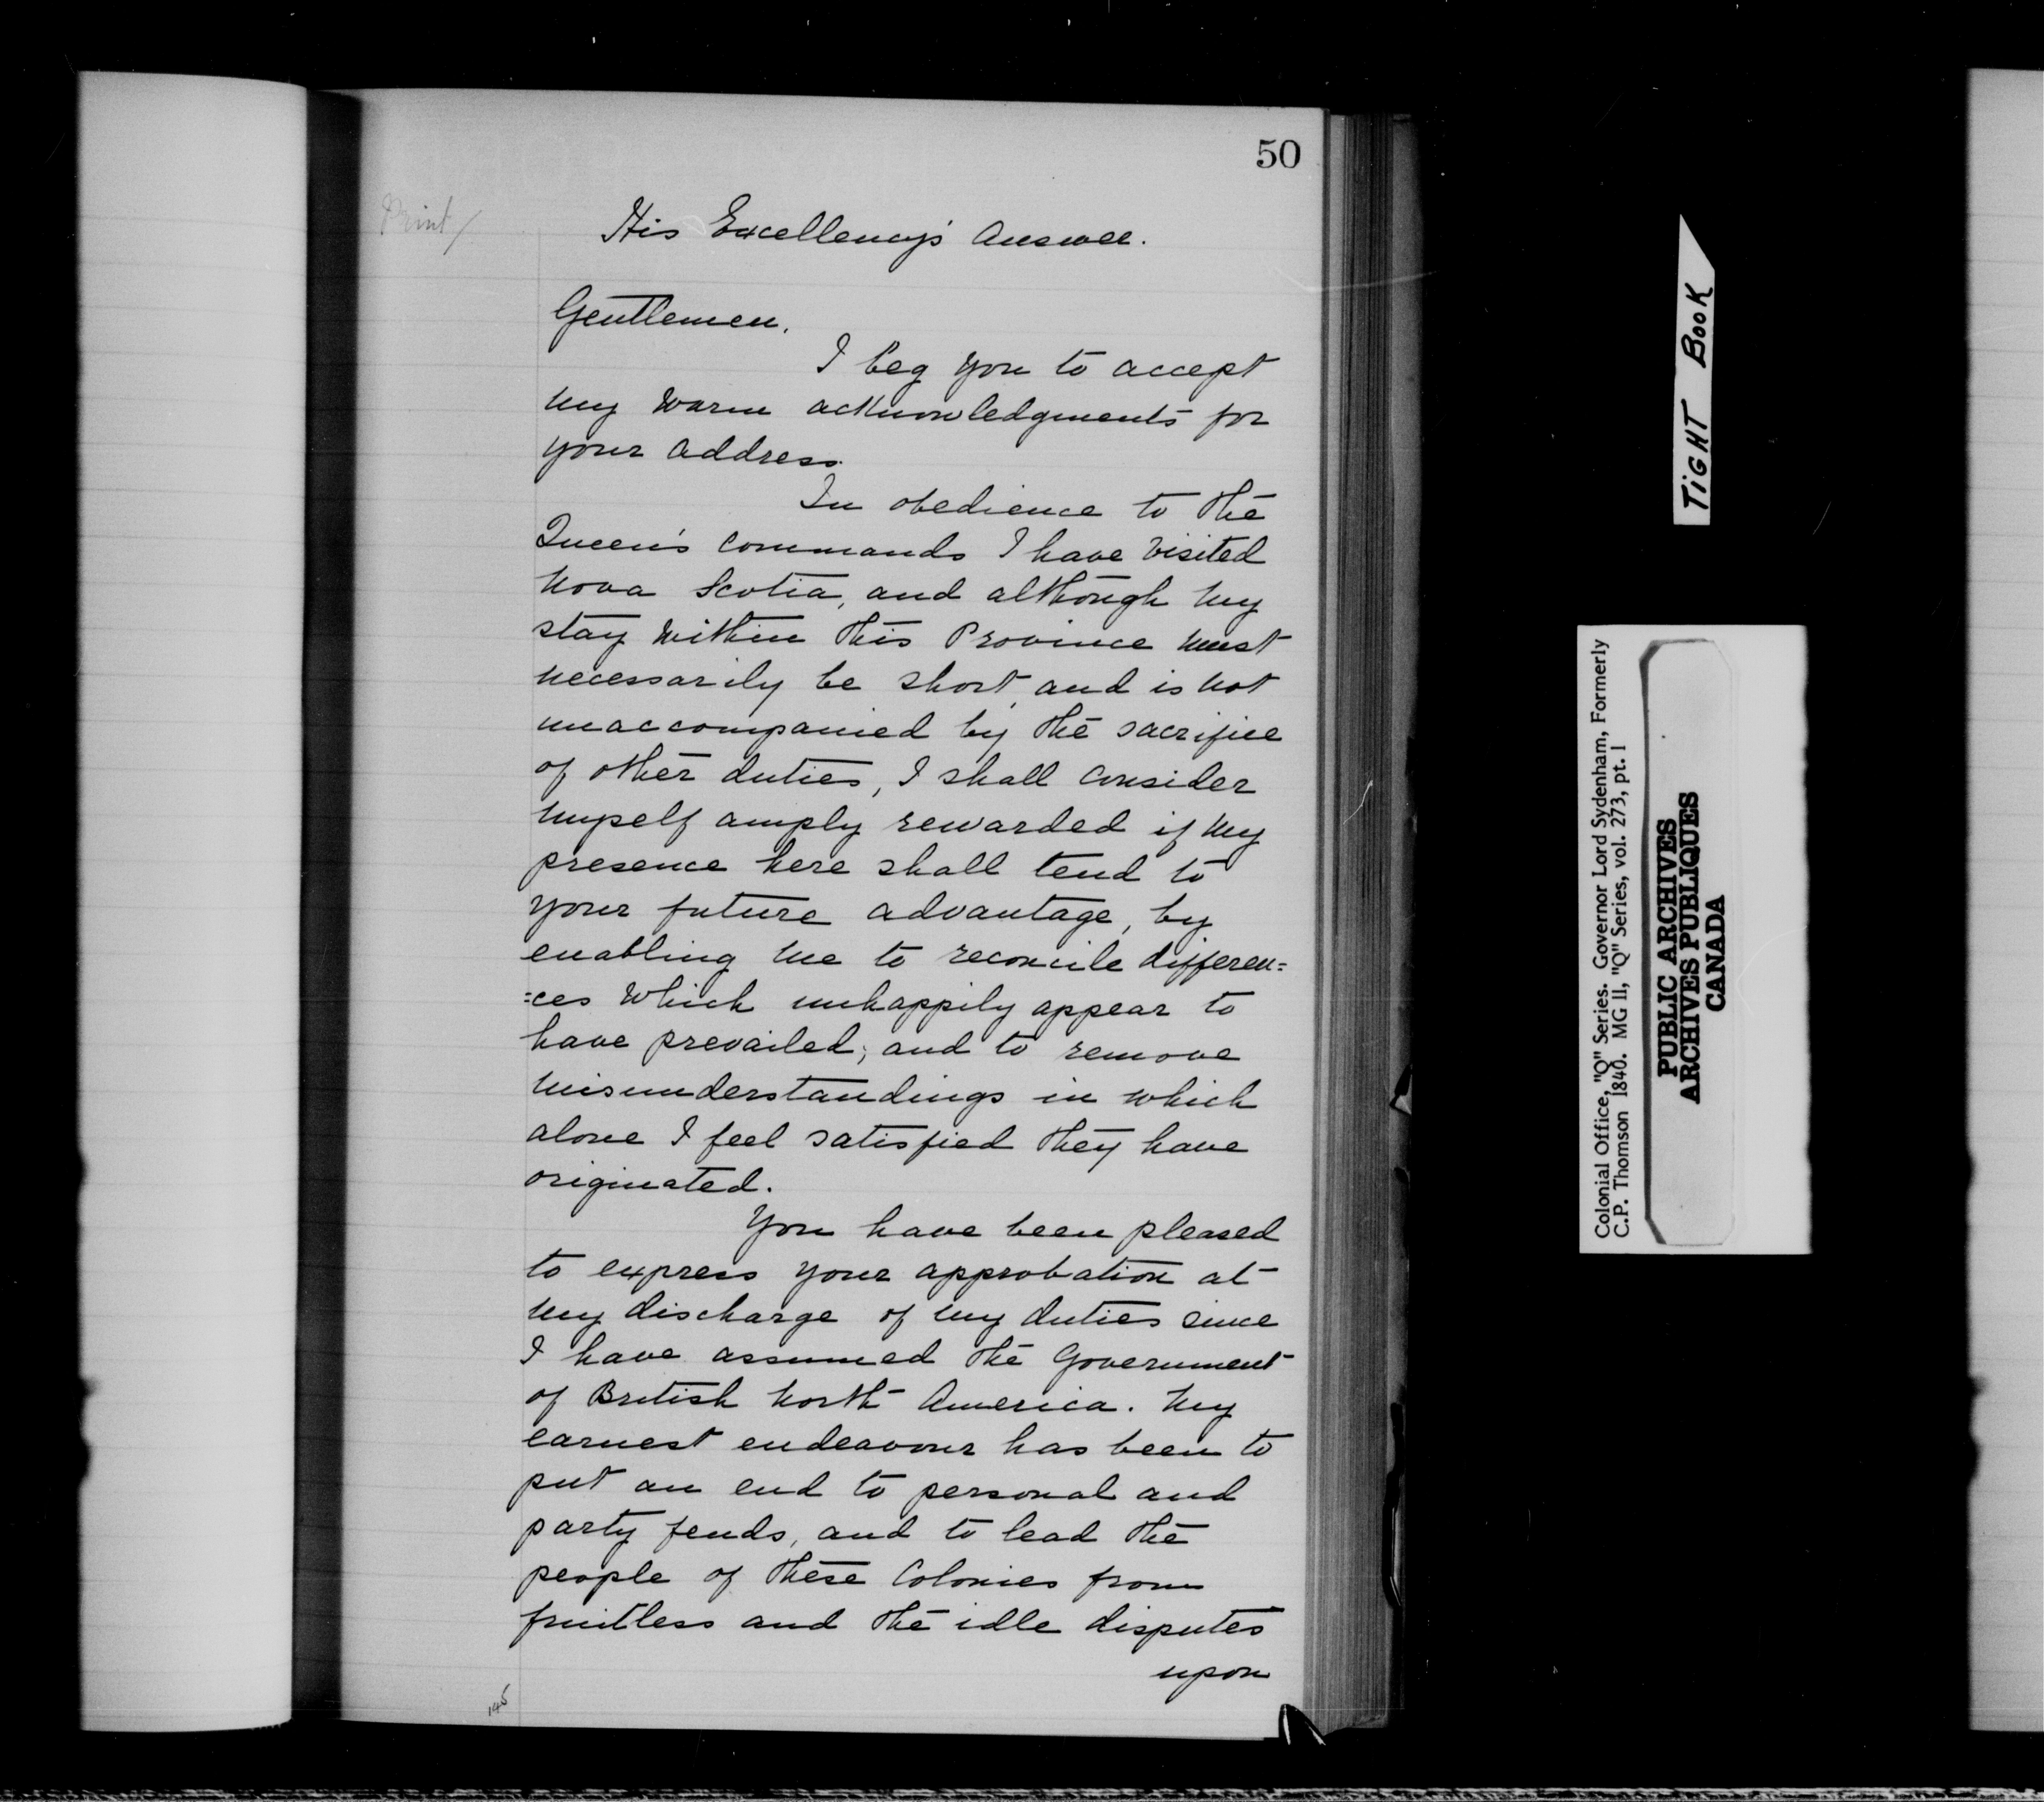 50
Print/
His Excellency's Answer.
Gentlemen,
I beg you to accept
my warm acknowledgments for
your address.
In obedience to the
Queen's commands I have visited
Nova Scotia, and although my
stay within this Province must
necessarily be short, and is not
unaccompanied by the sacrifice
of other duties, I shall consider
myself amply rewarded if my
presence here shall tend to
your future advantage, by
enabling me to reconcile differen=
=ces which unhappily appear to
have prevailed; and to remove
misunderstandings in which
alone I feel satisfied they have
originated.
You have been pleased
to express your approbation at
my discharge of my duties since
I have assumed the Government
of British North America. My
earnest endeavour has been to
put an end to personal and
party feuds, and to lead the
people of these Colonies from
fruitless and the idle disputes
upon
145
TIGHT BOOK
Colonial Office, "Q" Series. Governor Lord Sydenham, Formerly
C.P. Thomson 1840. MG 11, "Q" Series, vol. 273, pt. 1
PUBLIC ARCHIVES
ARCHIVES PUBLIQUES
CANADA